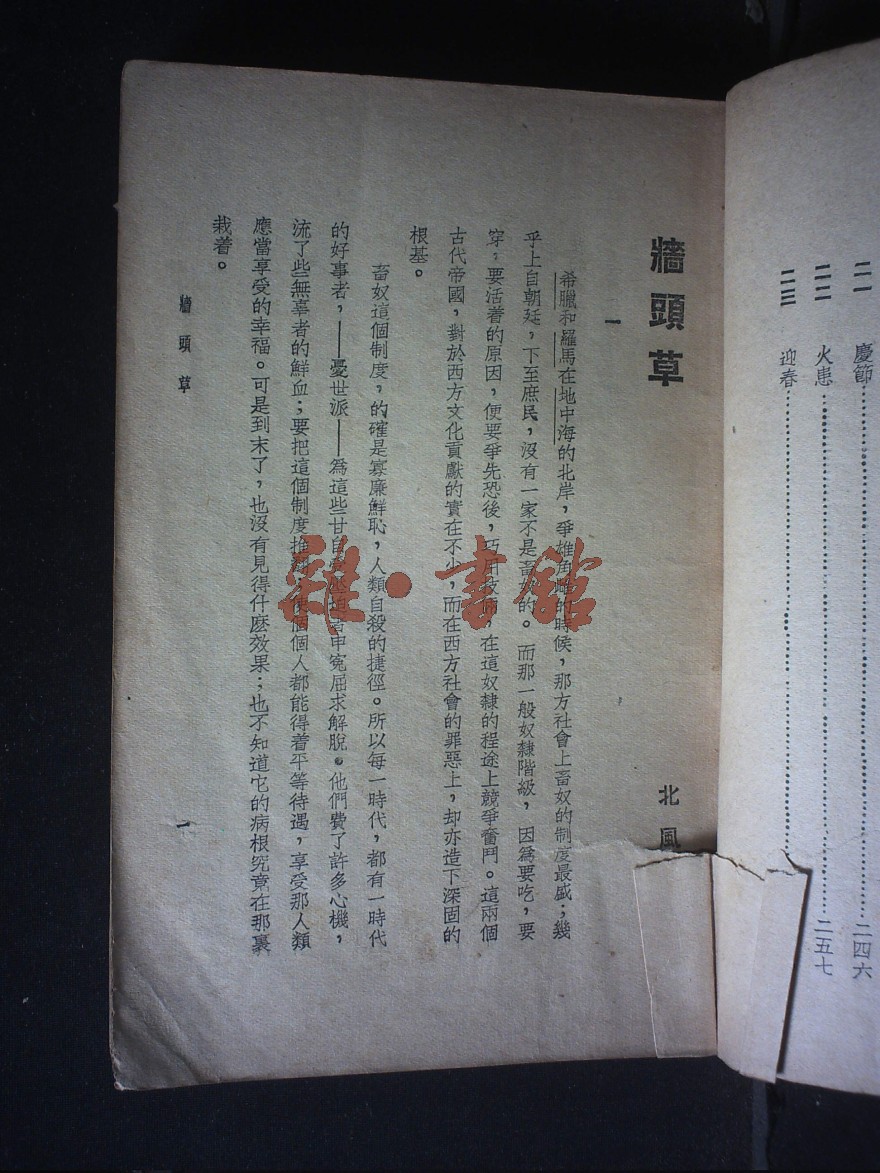 二一 慶節……………………二四六
二二 火患……………………二五七
二三 迎春……………………
牆頭草
北風
一
希臘和羅馬在地中海的北岸，爭雄角雌的時候，那方社會上畜奴的制度最盛；幾
乎上自朝廷，下至庶民，沒有一家不是畜奴的。而那一般奴隸階級，因爲要吃，要
穿，要活着的原因，便要爭先恐後，巧用技倆，在這奴隸的程途上競爭奮鬥。這兩個
古代帝國，對於西方文化貢獻的實在不少，而在西方社會的罪惡上，却亦造下深固的
根基。
畜奴這個制度，的確是寡廉鮮恥，人類自殺的捷徑。所以每一時代，都有一時代
的好事者，——憂世派——爲這些甘自 者申寃屈求解脫。他們費了許多心機，
流了些無辜者的鮮血；要把這個制度推翻，使個個人都能得着平等待遇，享受那人類
應當享受的幸福。可是到末了，也沒有見得什麽效果；也不知道它的病根究竟在那裏
栽着。
牆頭草
一
雜·書館